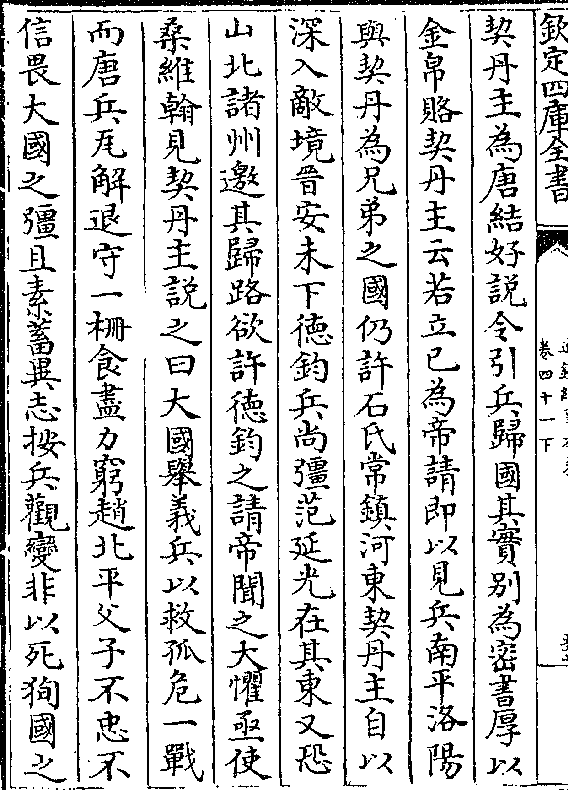 欽定四庫全書
卷四十一下
契丹主為唐結好説令引兵歸國其實别為密書厚以
金帛賂契丹主云若立已為帝請即以見兵南平洛陽
與契丹為兄弟之國仍許石氏常鎮河東契丹主自以
深入敵境晉安未下徳鈞兵尚彊范延光在其東又恐
山北諸州邀其歸路欲許徳鈞之請帝聞之大懼亟使
桑維翰見契丹主説之曰大國舉義兵以救孤危一戰
而唐兵瓦解退守一栅食盡力窮趙北平父子不忠不
信畏大國之彊且素蓄異志按兵觀變非以死狥國之